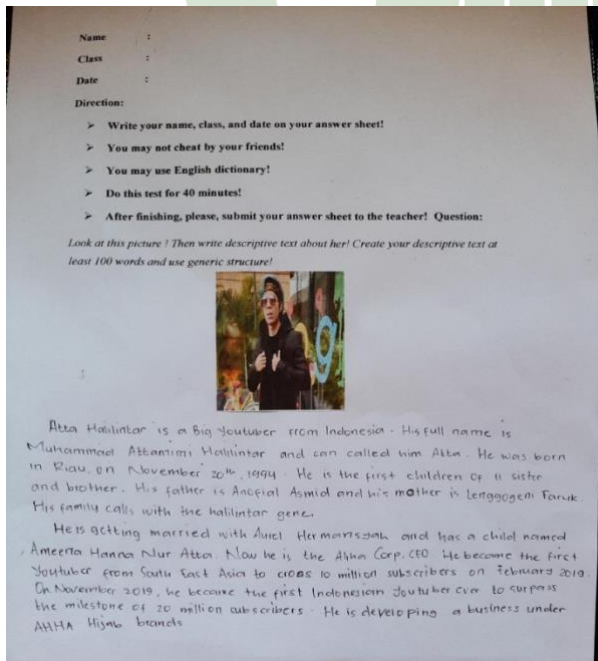 Name :
Class :
Date :
Direction:
➢ Write your name, class, and date on your answer sheet!
➢ You may not cheat by your friends!
➢ You may use English dictionary!
➢ Do this test for 40 minutes!
➢ After finishing, please, submit your answer sheet to the teacher! Question:
Look at this picture ! Then write descriptive text about her! Create your descriptive text at
least 100 words and use generic structure!
g
Atta Halilintar is a Big Youtuber from Indonesia. His full name is
Muhammad Attamimi Halilintar and can called him Atta. He was born
in Riau, on November 20th, 1994. He is the first children of 11 sister
and brother. His father is Anofial Asmid and his mother is Lenggogeni Faruk.
His family calls with the halilintar gene.
He is getting married with Aurel Hermansyah and has a child named
Ameena Hanna Nur Atta. Now he is the Ahha Corp. CEO. He became the first
Youtuber from South East Asia to cross 10 million subscribers on February 2019.
On November 2019, he became the first Indonesian Youtuber ever to surpass
the milestone of 20 million subscribers. He is developing a business under
AHHA Hijab brands